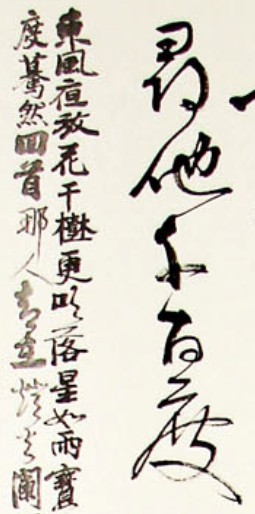 尋他千百度
東風夜放花千樹更吹落星如雨寶
度驀然回首那人卻在燈火闌